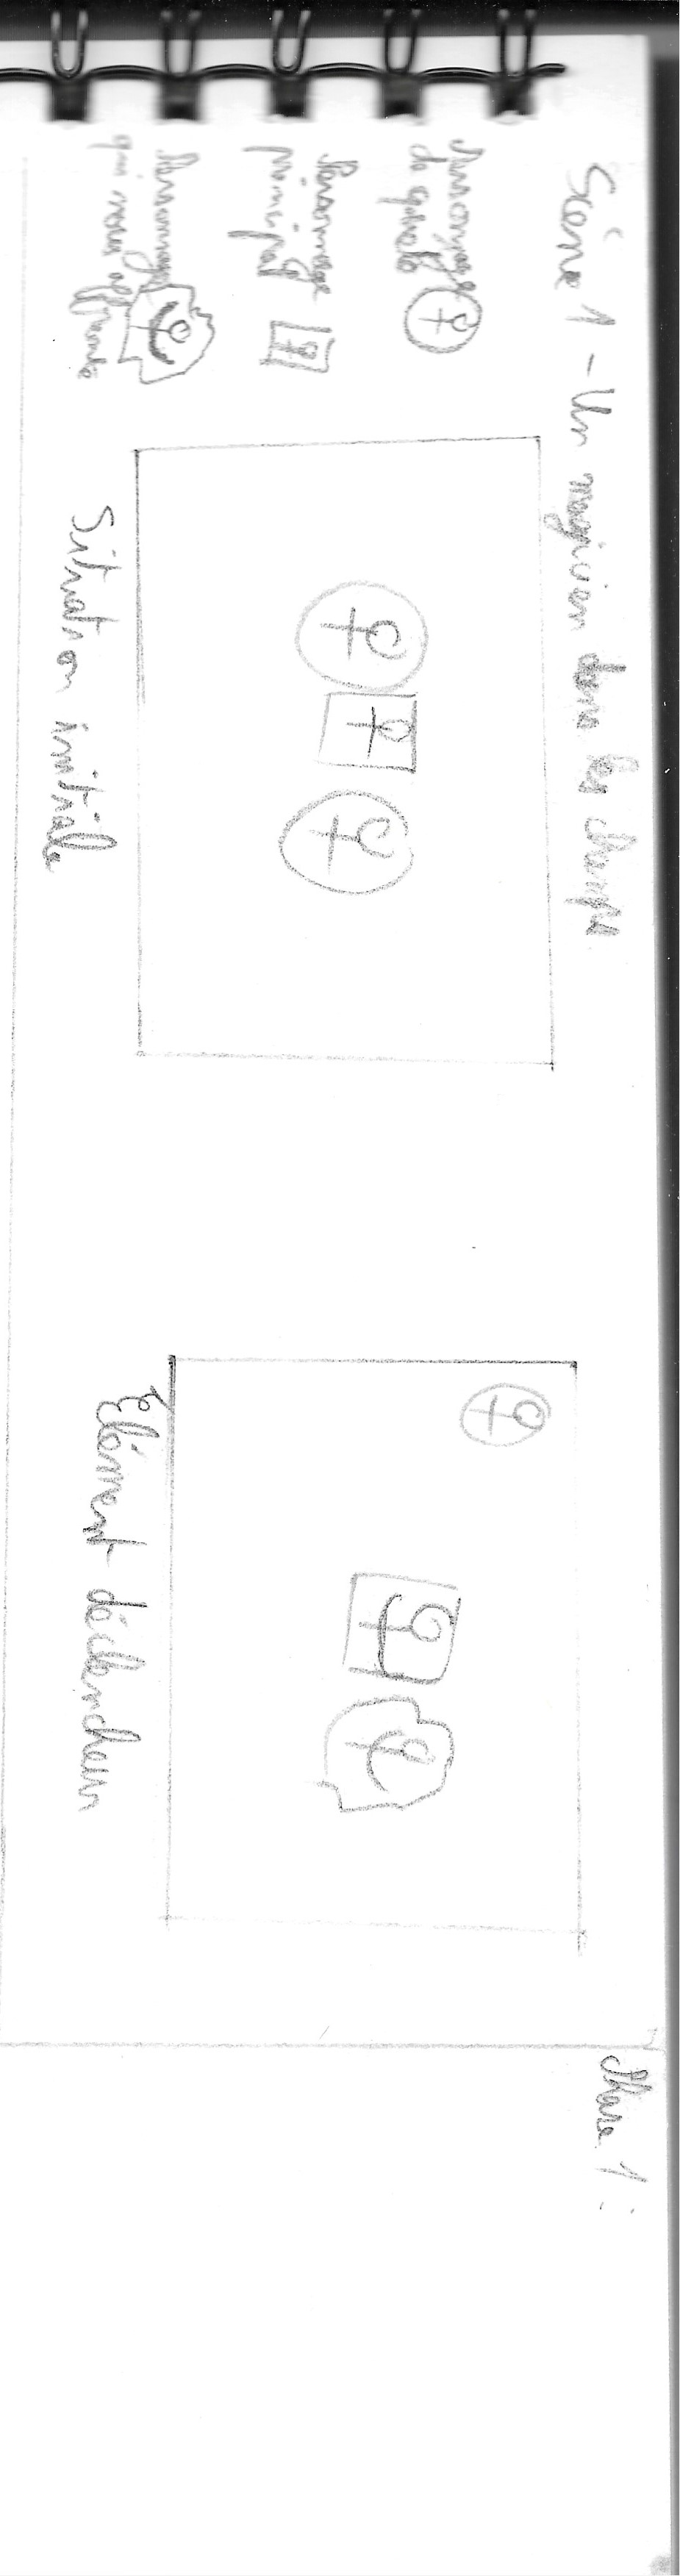 Scène 1 - Un magicien dans les champs
Personnage
de quête
Personnage
principal
Personnage
qui nous est
Situation initiale
Elément déclencheur
Phase 1 :